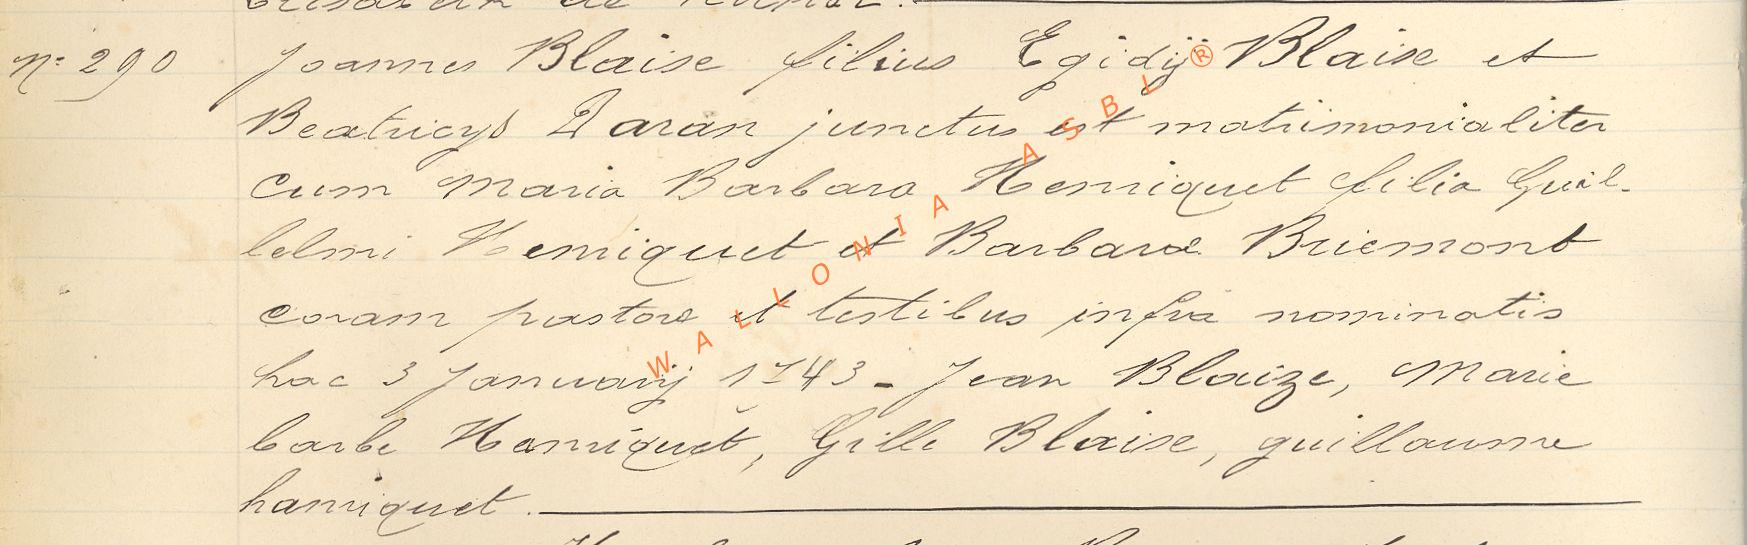 n: 290 Joannes Blaise filius Egidij Blaise et
Beatricys Daran junctus est matrimonialiter
cum Maria Barbara Hemriquet filia Guil-
lelmi Hemriquet et Barbara Briemont
coram pastore et testibus infra nominatis
hac 3 Januarij 1743 - Jean Blaize, Marie
barbe Hamriquet, Gille Blaise, guillaume
hamriquet.
WALLONIA ASBL®